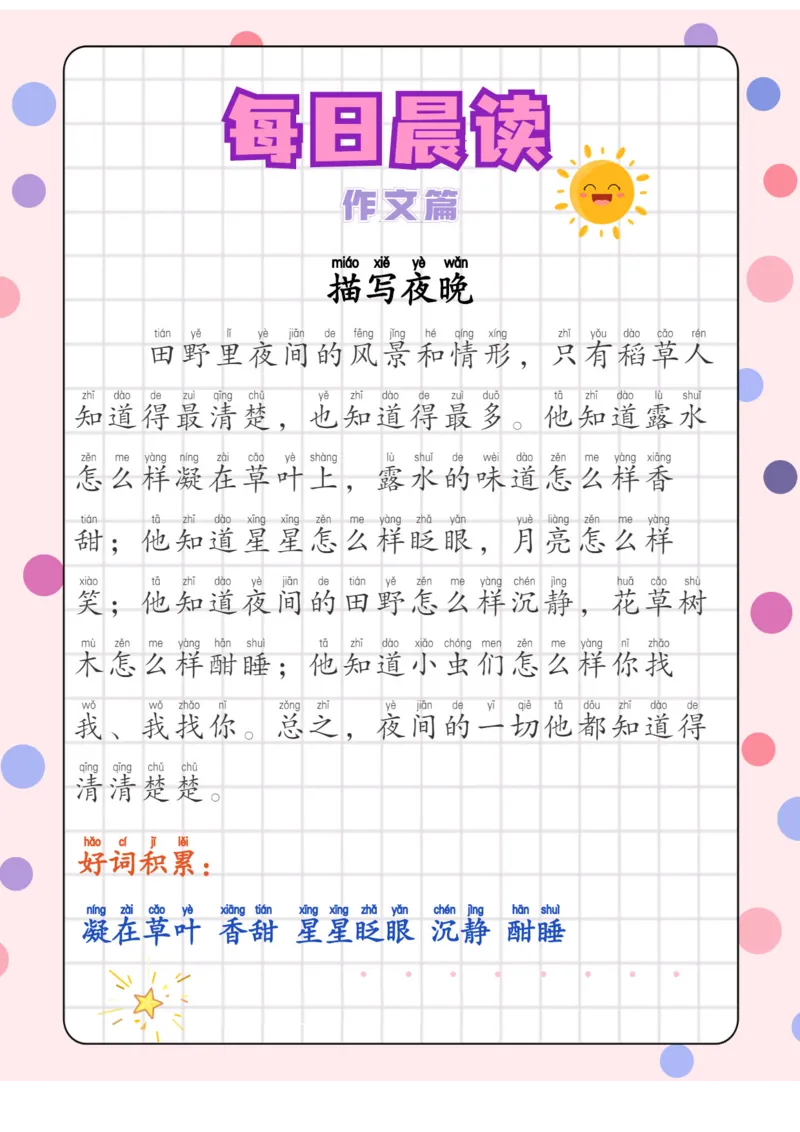 每日晨读
作文篇
miáo xiě yè wǎn
描写夜晚
tián yě lǐ yè jiān de fēng jǐng hé qíng xíng zhǐ yǒu dào cǎo rén
田野里夜间的风景和情形，只有稻草人
zhī dào de zuì qīng chǔ yě zhī dào de zuì duō tā zhī dào lù shuǐ
知道得最清楚，也知道得最多。他知道露水
zěn me yàng níng zài cǎo yè shàng lù shuǐ de wèi dào zěn me yàng xiāng
怎么样凝在草叶上，露水的味道怎么样香
tián tā zhī dào xīng xīng zěn me yàng zhǎ yǎn yuè liàng zěn me yàng
甜；他知道星星怎么样眨眼，月亮怎么样
xiào tā zhī dào yè jiān de tián yě zěn me yàng chén jìng huā cǎo shù
笑；他知道夜间的田野怎么样沉静，花草树
mù zěn me yàng hān shuì tā zhī dào xiǎo chóng men zěn me yàng nǐ zhǎo
木怎么样酣睡；他知道小虫们怎么样你找
wǒ wǒ zhǎo nǐ zǒng zhī yè jiān de yī qiē tā dōu zhī dào de
我、我找你。总之，夜间的一切他都知道得
qīng qīng chǔ chǔ
清清楚楚。
hǎo cí jī lěi
好词积累：
níng zài cǎo yè xiāng tián xīng xīng zhǎ yǎn chén jìng hān shuì
凝在草叶 香甜 星星眨眼 沉静 酣睡